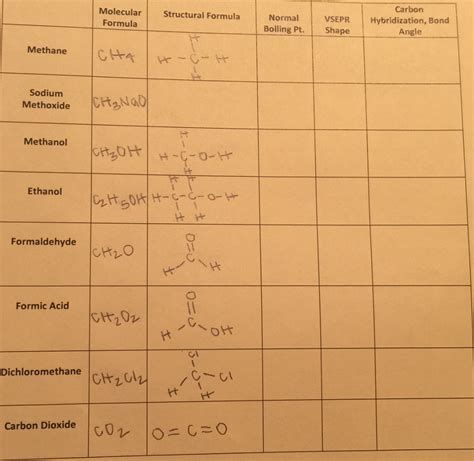 Molecular Formula	Structural Formula	Normal Boiling Pt.	VSEPR Shape	Carbon Hybridization, Bond Angle
Methane	CH4
H
H - C - H
H
Sodium Methoxide	CH3NaO
Methanol	CH3OH
H
H - C - O - H
H
Ethanol	C2H5OH
H H
H - C - C - O - H
H H
Formaldehyde	CH2O
O
C
H H
Formic Acid	CH2O2
O
C
H OH
Dichloromethane	CH2Cl2
Cl
C - Cl
H H
Carbon Dioxide	CO2	O=C=O